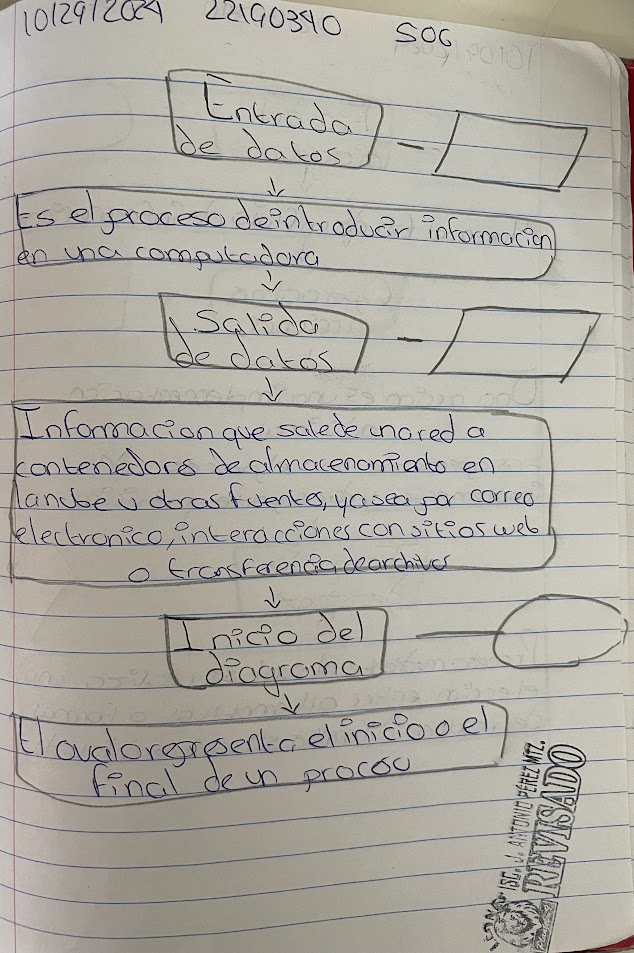 10/29/2024 22190340 SOG
Entrada
de datos
Es el proceso de introducir informacion
en una computadora
Salida
de datos
Informacion que sale de una red a
contenedors de almacenamiento en
la nube u otras fuentes, ya sea por correo
electronico, interacciones con sitios web
o transferencia de archivos
Inicio del
diagrama
El ovalo representa el inicio o el
final de un proceso
ISC. J. ANTONIO PÉREZ MTZ.
REVISADO